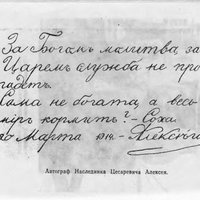 За Богомъ молитва, за
Царемъ служба не про-
падетъ.
Сама не богата, а весь
міръ кормитъ? - Соха
Марта 1914. - Алексѣй
Автограф Наследника Цесаревича Алексея.